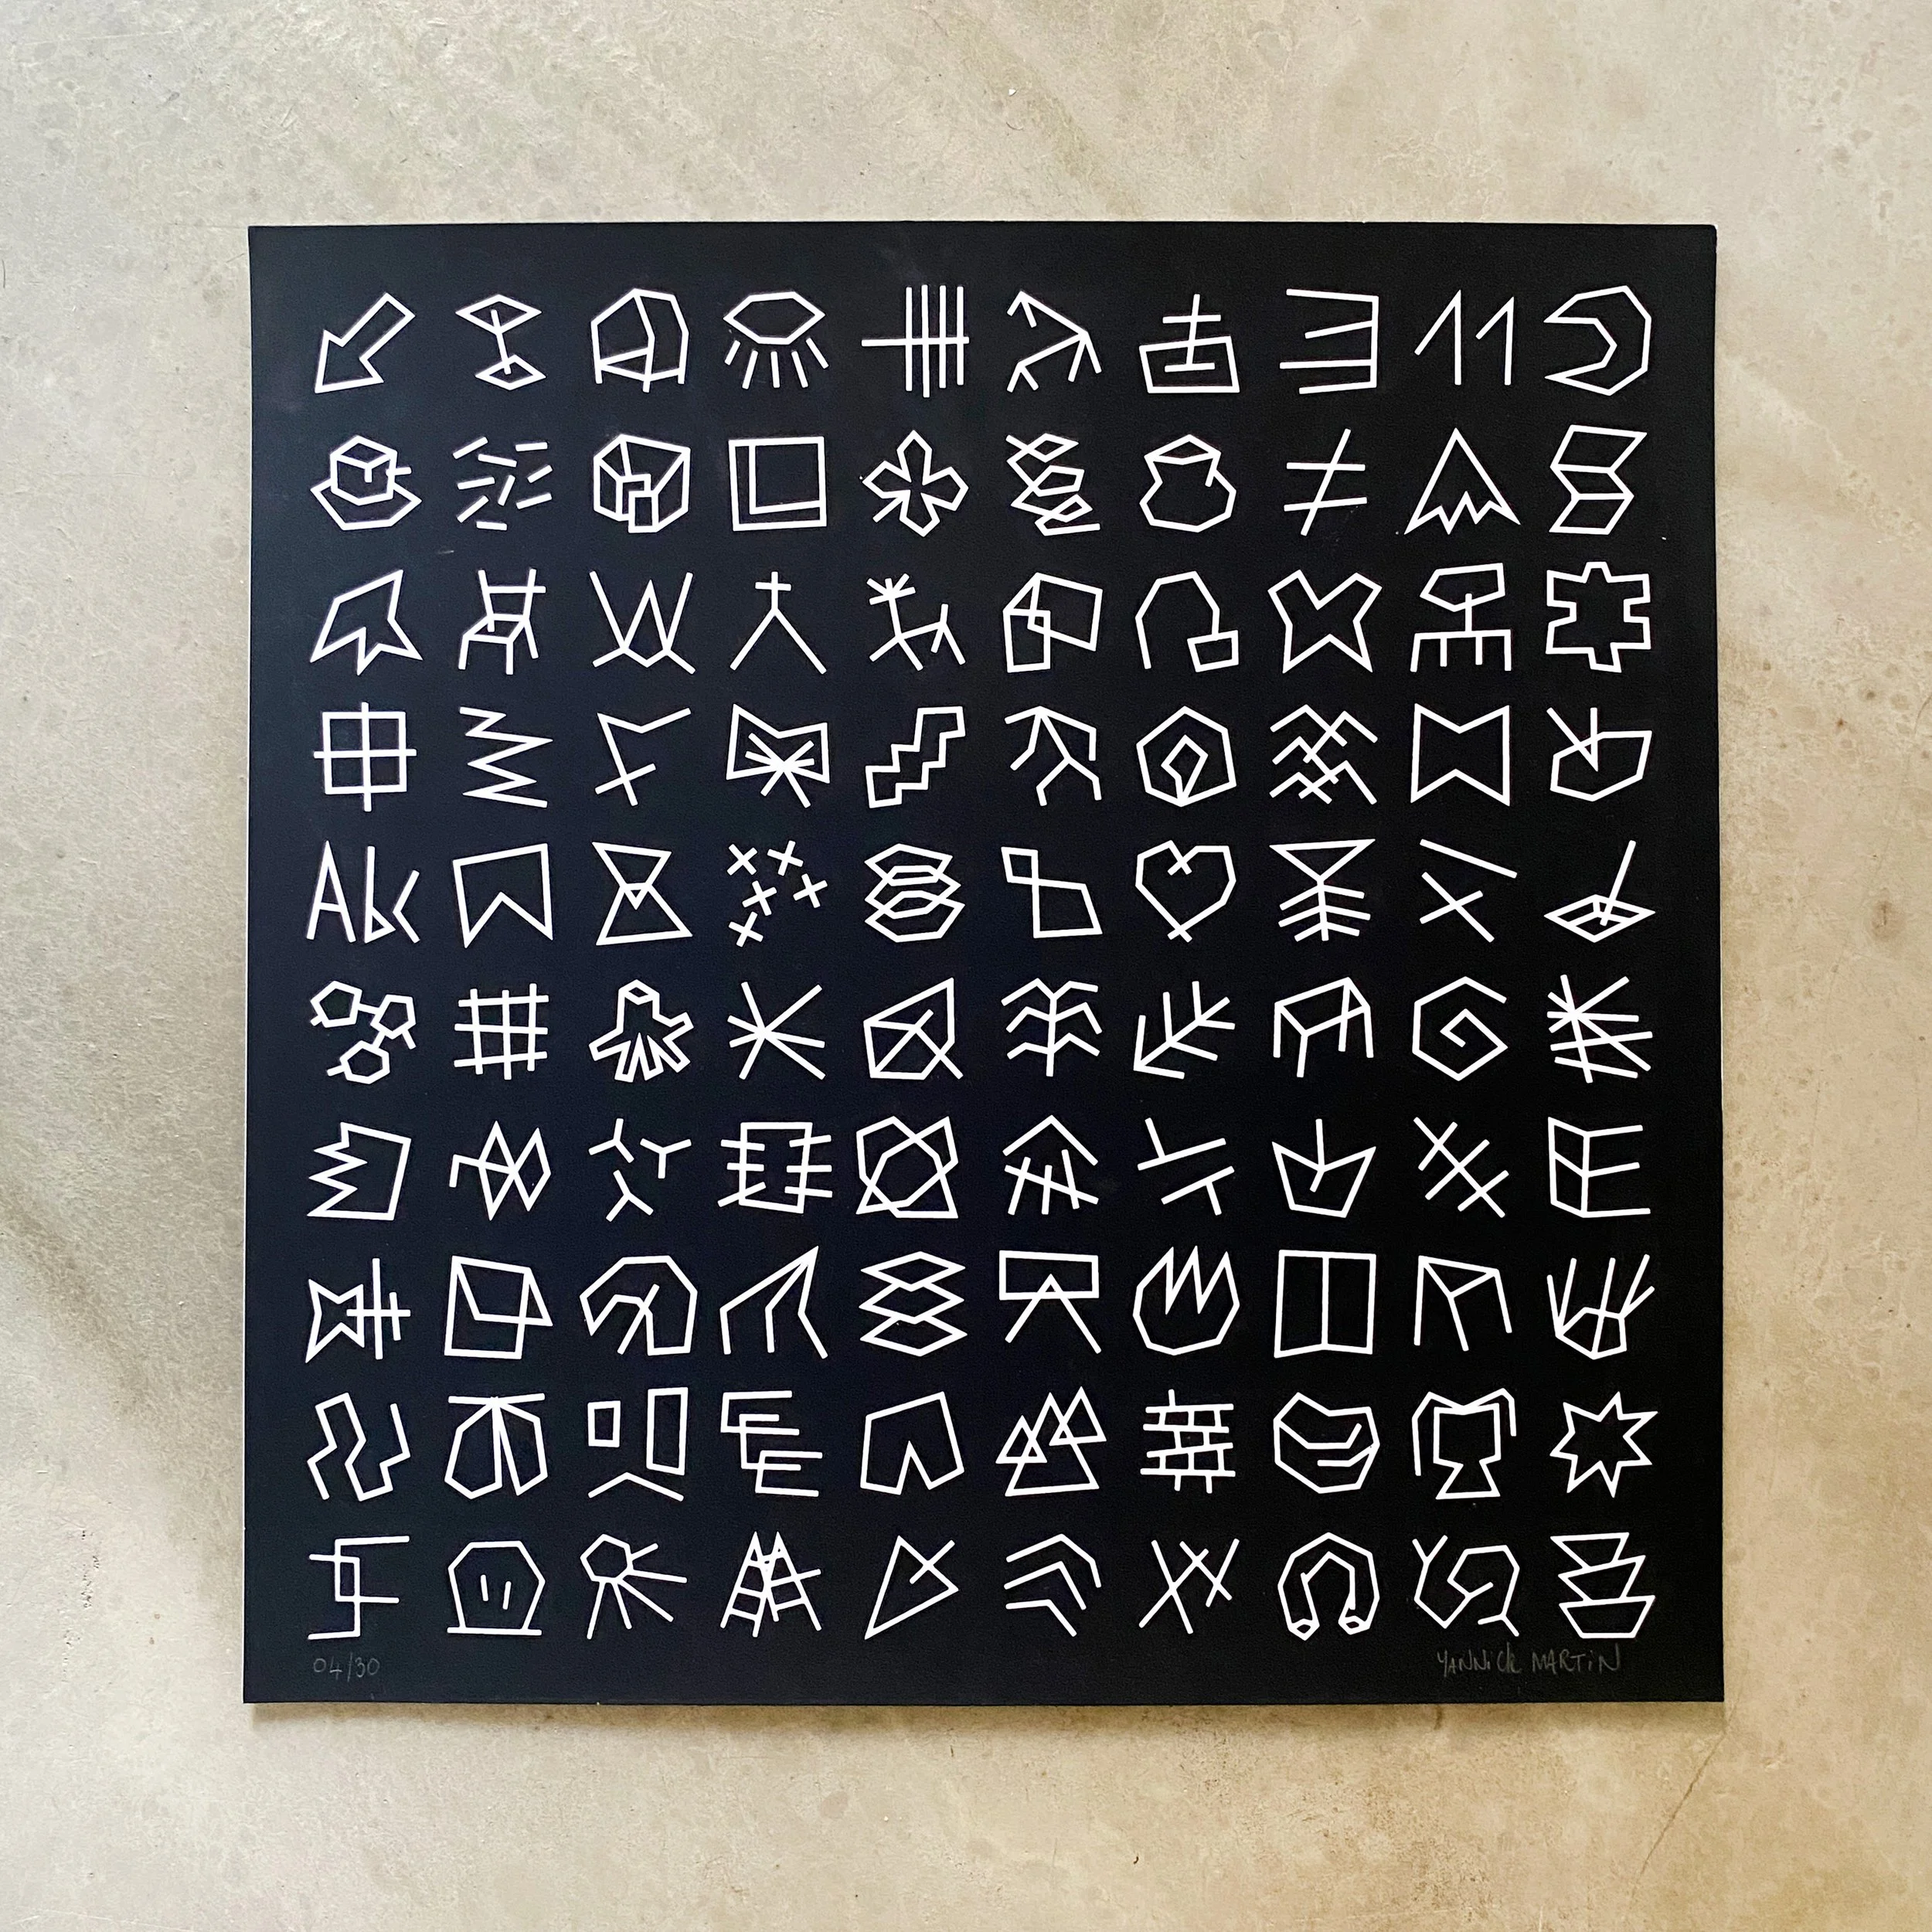 Abc
04/30
YANNiCK MARTiN